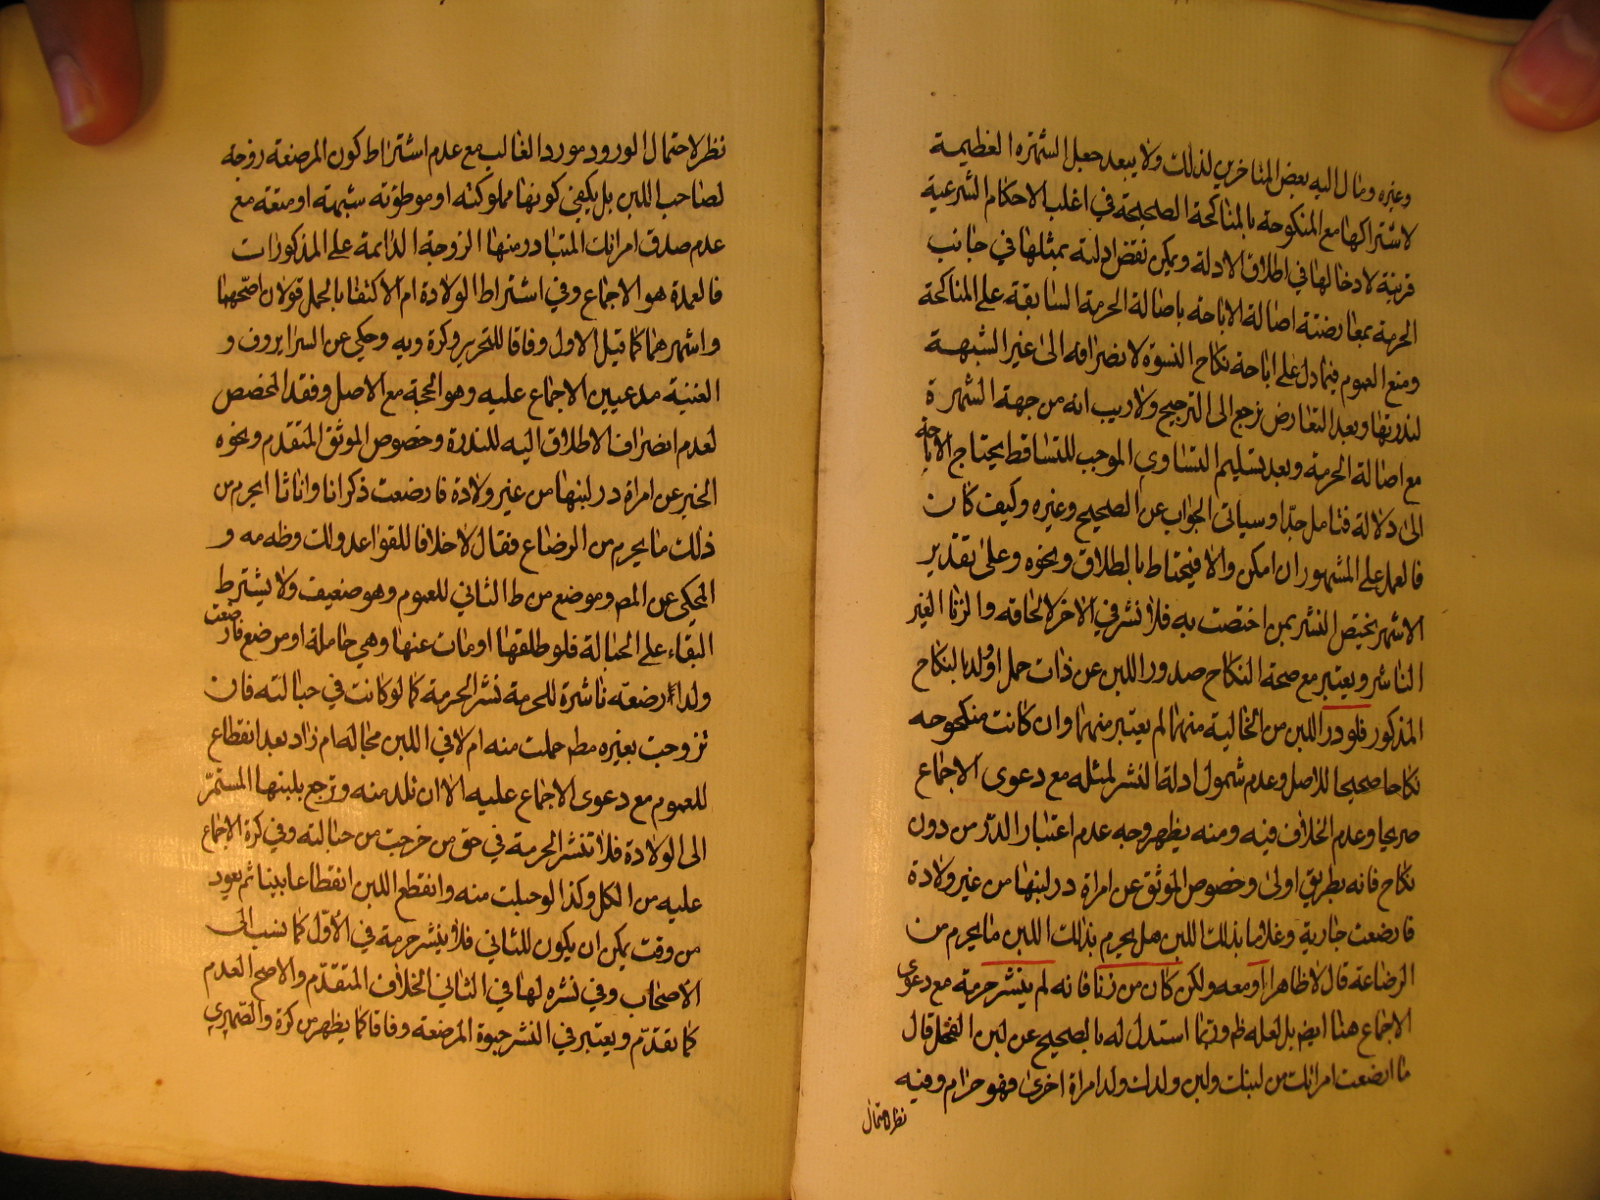 وغيره ومال اليه بعض المتاخرين لذلك ولا يبعد جعل الشهرة العظيمة
لاشتراكها مع المنكوحة بالمناكحة الصحيحة في اغلب الاحكام الشرعية
قرينة لادخالها في اطلاق الادلة ويمكن نقض ادلته بمثلها في جانب
الحرمة بمعارضة اصالة الاباحة باصالة الحرمة السابقة على المناكحة
ومنع العموم فيما دل على اباحة نكاح النسوة لانصرافه الى غير الشبهة
لندرتها وبعد التعارض نرجع الى الترجيح ولا ريب انه من جهة الشهرة
مع اصالة الحرمة وبعد تسليم التساوي الموجب للتساقط يحتاج الاباحة
الى دلالة فتامل جدا وسياتي الجواب عن الصحيح وغيره وكيف كان
فالعمل على المشهور ان امكن والا فيحتاط بالطلاق ونحوه وعلى تقدير
الاشهر يختص النشر بمن اختصت به فلا نشر في الاخر لالحاقه والزنا الغير
الناشر ويعتبر مع صحة النكاح صدور اللبن عن ذات حمل او ولد بالنكاح
المذكور فلو در اللبن من الخالية منهما لم يعتبر منهما وان كانت منكوحه
نكاحا صحيحا للاصل وعدم شمول ادلة النشر لمثله مع دعوى الاجماع
صريحا وعدم الخلاف فيه ومنه يظهر وجه عدم اعتبار الدر من دون
نكاح فانه بطريق اولى وخصوص الموثق عن امراة در لبنها من غير ولادة
فارضعت جارية وغلاما بذلك اللبن هل يحرم بذلك اللبن ما يحرم من
الرضاعة قال لا ظاهرا ومعه ولكن كان من زنا فانه لم ينشر حرمة مع دعوى
الاجماع هنا ايضا بل لعله ظ وربما استدل له بالصحيح عن لبن الفحل قال
ما ارضعت امراتك من لبنك ولبن ولدك ولد امراة اخرى فهو حرام وفيه
نظر لاحتمال
نظر لاحتمال الورود مورد الغالب مع عدم اشتراط كون المرضعة زوجة
لصاحب اللبن بل يكفي كونها مملوكته او موطوئته شبهة او متعة مع
عدم صدق امراتك المتبادر منها الزوجة الدائمة على المذكورات
فالعمدة هو الاجماع وفي اشتراط الولادة ام الاكتفا بالحمل قولان اصحهما
واشهرهما كما قيل الاول وفاقا للتحرير وكرة ويه وحكي عن السراير وف و
الغنية مدعيين الاجماع عليه وهو الحجة مع الاصل وفقد المخصص
لعدم انصراف الاطلاق اليه للندرة وخصوص الموثق المتقدم ونحوه
الخبر عن امراة در لبنها من غير ولادة فارضعت ذكرانا واناثا ايحرم من
ذلك ما يحرم من الرضاع فقال لا خلافا للقواعد ولك وظ مه و
المحكي عن المص وموضع من ط الثاني للعموم وهو ضعيف ولا يشترط
البقاء على الحبالة فلو طلقها او مات عنها وهي حاملة او مرضع فارضعت
ولدا ارضعته ناشرة للحرمة نشر الحرمة كما لو كانت في حبالته فان
تزوجت بغيره مط حملت منه ام لا في اللبن بحاله ام زاد بعد انقطاع
للعموم مع دعوى الاجماع عليه الا ان تلد منه وترجع بلبنها المستمر
الى الولادة فلا تنشر الحرمة في حق من خرجت من حبالته وفي كرة الاجماع
عليه من الكل وكذا لو حبلت منه وانقطع اللبن انقطاعا بينا ثم يعود
من وقت يمكن ان يكون للثاني فلا ينشر حرمة في الاول كما نسب الى
الاصحاب وفي نشره لها في الثاني الخلاف المتقدم والاصح العدم
كما تقدم ويعتبر في النشر حيوة المرضعة وفاقا كما يظهر من كرة والصميري